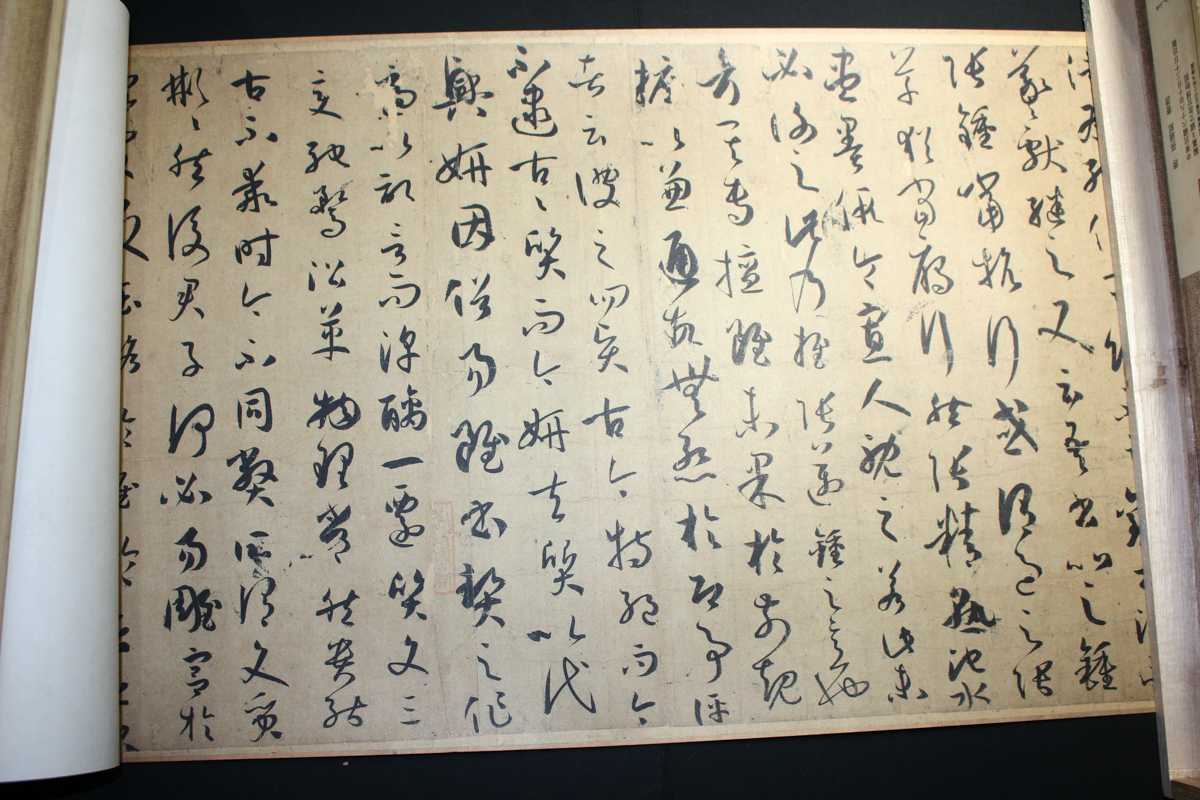 羲獻繼之又云吾書比之鍾
張鍾當抗行或謂過之張
草猶當雁行然張精熟池水
盡墨假令寡人耽之若此未
必謝之此乃推張邁鍾之意也
考其專擅雖未果於前規
摭以兼通故無慚於即事評
者云彼之四賢古今特絕而今
不逮古古質而今妍夫質以代
興妍因俗易雖書契之作
適以記言而淳醨一遷質文三
變馳騖沿革物理常然貴能
古不乖時今不同弊所謂文質
彬〻然後君子何必易雕宮於